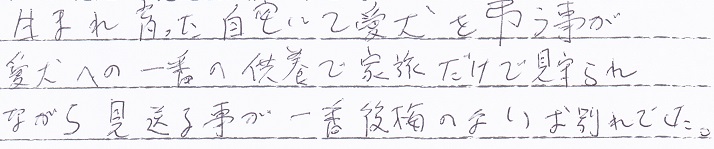 生まれ育った自宅にて愛犬を弔う事が
愛犬への一番の供養で家族だけで見守られ
ながら見送る事が一番後悔のないお別れでした。